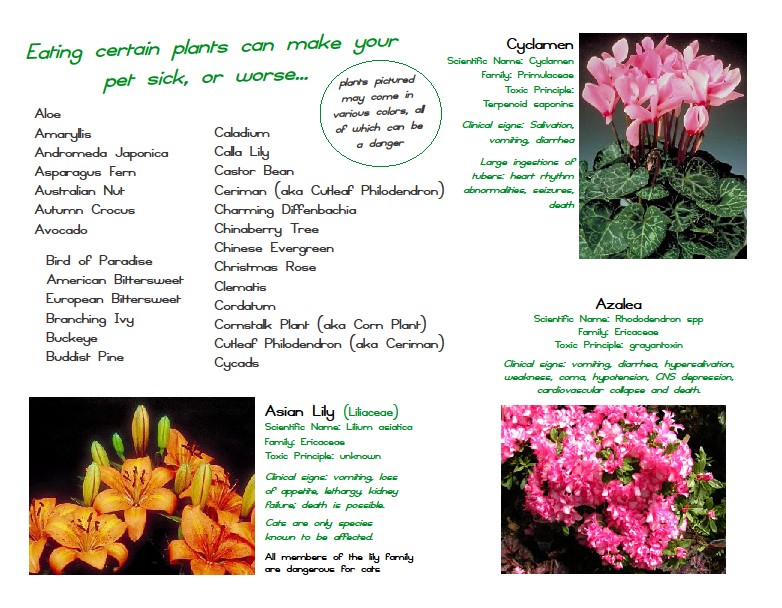 Eating certain plants can make your
pet sick, or worse...
plants pictured
may come in
various colors, all
of which can be
a danger
Aloe
Amaryllis
Andromeda Japonica
Asparagus Fern
Australian Nut
Autumn Crocus
Avocado
Bird of Paradise
American Bittersweet
European Bittersweet
Branching Ivy
Buckeye
Buddist Pine
Caladium
Calla Lily
Castor Bean
Ceriman (aka Cutleaf Philodendron)
Charming Diffenbachia
Chinaberry Tree
Chinese Evergreen
Christmas Rose
Clematis
Cordatum
Cornstalk Plant (aka Corn Plant)
Cutleaf Philodendron (aka Ceriman)
Cycads
Cyclamen
Scientific Name: Cyclamen
Family: Primulaceae
Toxic Principle:
Terpenoid saponins
Clinical signs: Salivation,
vomiting, diarrhea
Large ingestions of
tubers: heart rhythm
abnormalities, seizures,
death
Azalea
Scientific Name: Rhododendron spp
Family: Ericaceae
Toxic Principle: grayantoxin
Clinical signs: vomiting, diarrhea, hypersalivation,
weakness, coma, hypotension, CNS depression,
cardiovascular collapse and death.
Asian Lily (Liliaceae)
Scientific Name: Lilium asiatica
Family: Ericaceae
Toxic Principle: unknown
Clinical signs: vomiting, loss
of appetite, lethargy, kidney
failure; death is possible.
Cats are only species
known to be affected.
All members of the lily family
are dangerous for cats